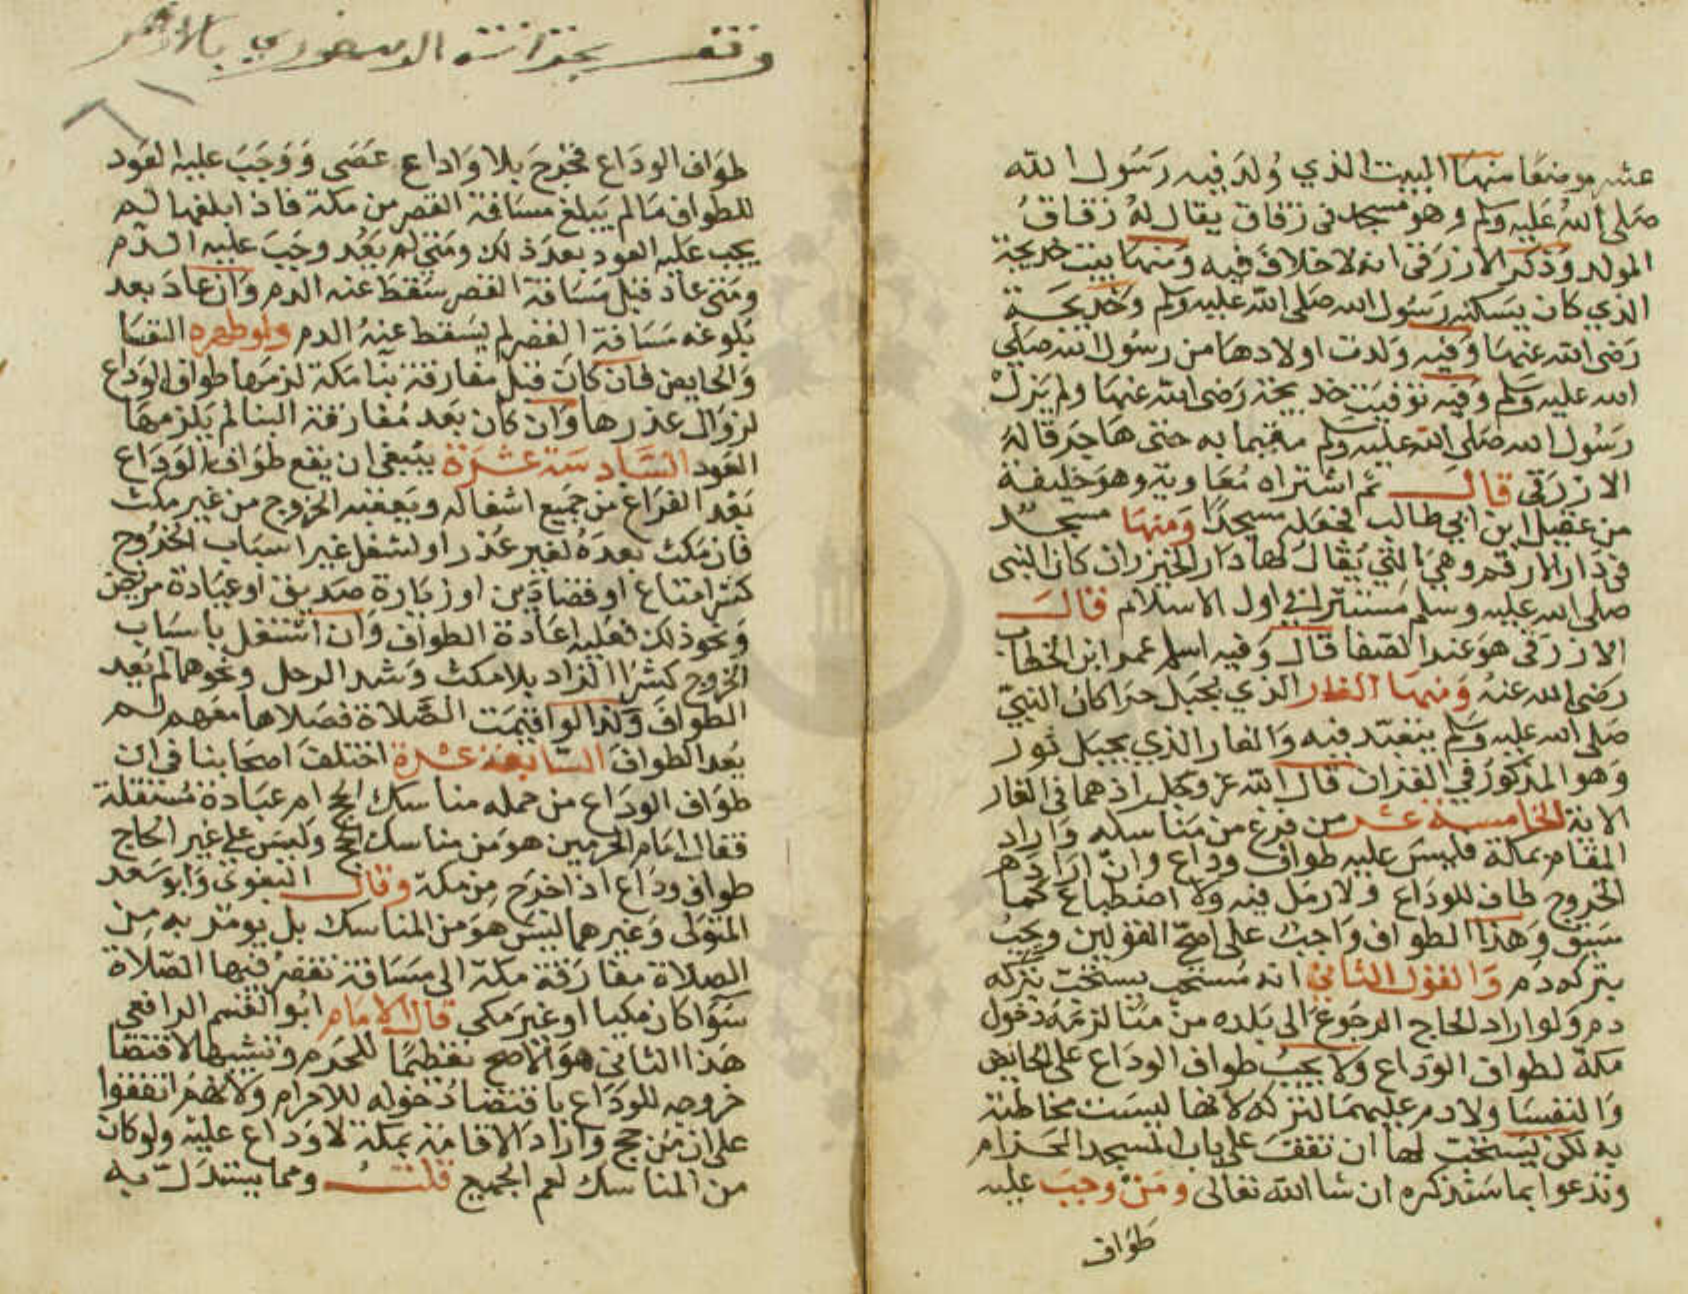 عشر موضعا منها البيت الذي وُلدَ فيه رَسُول الله
صَلى اللهُ عَليه وَسلم وهو مسجد في زقاق يقال لهُ زقاقُ
المولد وَذكر الازرَقى انه لا خلافَ فيه وَمنهَا بيت خديجَة
الذي كان يسَكنه رسُول الله صَلى الله عليه وسَلم وخَديجَــة
رَضى الله عنهَا وَفيه وَلدت اولادهَا من رسُول الله صَلى
الله عليه وَسَلم وَفيه توفيَت خديجَة رَضى الله عنهَا ولم يَزلْ
رَسُول الله صَلى الله عليه وَسلم مقيما به حتى هَاجَر قالهُ
الازرَقى قال ثم اشتراه مُعَاوية وهوَ خليفَة
من عقيل ابن ابي طالب فجعَله مسجدًا وَمنهَا مسجــد
في دَار الارقم وهيَ التي يُقالُ لهَا دَار الخيزران كان النبى
صَلى الله عليه وسلم مسَتترا في اول الاسلام قال
الازرقى هوَ عند الصَفا قال وَفيه اسلم عمر ابن الخطاب
رَضى الله عنهُ وَمنهَا الغار الذي بجبَل حرَا كان النبيّ
صَلى الله عليه وَسَلم يتعَبّد فيه وَالغار الذي بجبَل ثور
وَهو المذكورُ في القرَان قال الله عز وَجل اذ هما في الغار
الاية الخامسَة عشر من فرغ من مَناسكه وَارادَ
المقام بمكة فليسَ عليه طوافُ وداع وان ارادَ
الخروج طاف للودَاع ولا رمَل فيه ولا اضطباعَ كما
سَبق وَهذا الطواف وَاجبُ على اصَحّ القولين ويجبُ
بتركه دَم وَالقول الثاني انه مسُتحَب يستحبّ بتركه
دم وَلو اراد الحاج الرجوعَ الى بَلده من منى لزمَهُ دخول
مكة لطواف الودَاع ولا يجبُ طواف الودَاع على الحايض
وَالنفسَا ولا دم عليهمَا لتركه لانها ليسَت مخاطبَة
به لكن يُستحَبّ لهَا ان تقفَ على بابِ المسجِد الحَرام
وتدعوا بما سَنذكره ان شَا الله تعَالى وَمَنْ وجبَ عليه
طوَاف
طوَاف الودَاع فخرجَ بلا وَداع عَصَى وَوَجَبَ عليه العَود
للطواف مَا لم يَبلغ مسَافة القصر من مكة فاذ ابلغها لــم
يجب عَليه العود بعدَ ذلك ومتى لم يَعُد وجَبَ عليه الدّم
ومَتى عادَ قبل مسَافة القصر سَقط عنه الدم وَان عادَ بعد
بُلوغه مسَافة القصر لم يسَقط عنهُ الدم ولو طهره النفسَا
وَالحايض فان كانَ قبل مفارقة بنا مَكة لزمَها طواف الودَاع
لزوَال عذرها وَان كان بَعد مُفارقة البنا لم يَلزمهَا
العَود السَّادسَة عشرَة ينبَغى ان يقع طوَاف الوَدَاع
بَعد الفرَاغ من جَميع اشغاله ويَعقبه الخروج من غير مكث
فان مَكث بعدَهُ لغير عُذر او لشغل غير اسبَاب الخرُوج
كشرا متاع او قضا دَين او زيَارة صَديق او عيَادة مريض
وَنحوذلك فعَليه اعَادة الطوَاف وَان اشتغل باسبَاب
الخروج كشرَا الزاد بلا مكث وَشد الرحل ونحوهما لم يُعِد
الطوافَ وَلذا لو اقيمَت الصّلاة فصَلاها معَهم لــم
يعد الطوافَ السّابعَة عشرة اختلفَ اصحَابنا في ان
طوَاف الودَاع من جمله مناسك الحج ام عبَادة مُستقلة
فقال امَام الحرمين هوَ من مناسك الحج وَليسَ على غير الحاج
طواف ودَاع اذا خرَج مِن مكة وَقال البَغوى وَابو سَعد
المتولى وَغيرهما ليسَ هوَ من المناسك بل يومَر به مِن
الصلاة مفارَقة مكة الى مسَافة تقصُر فيها الصّلاة
سَوَا كان مكيا او غيرَ مكي قال الامَام ابوُ القسم الرافعي
هَذا الثانى هوَ الاصَح تعَظيمًا للحَرم وتشبيها لاقتضا
خروجه للوَدَاع باقتضا دُخوله للاحرام ولانهُم اتفقوا
على ان مَن حج وَارادَ الاقامة بمكة لا وَدَاع عليه ولو كان
من المنَاسك لعم الجميع قلتُ ومما يستدَل به